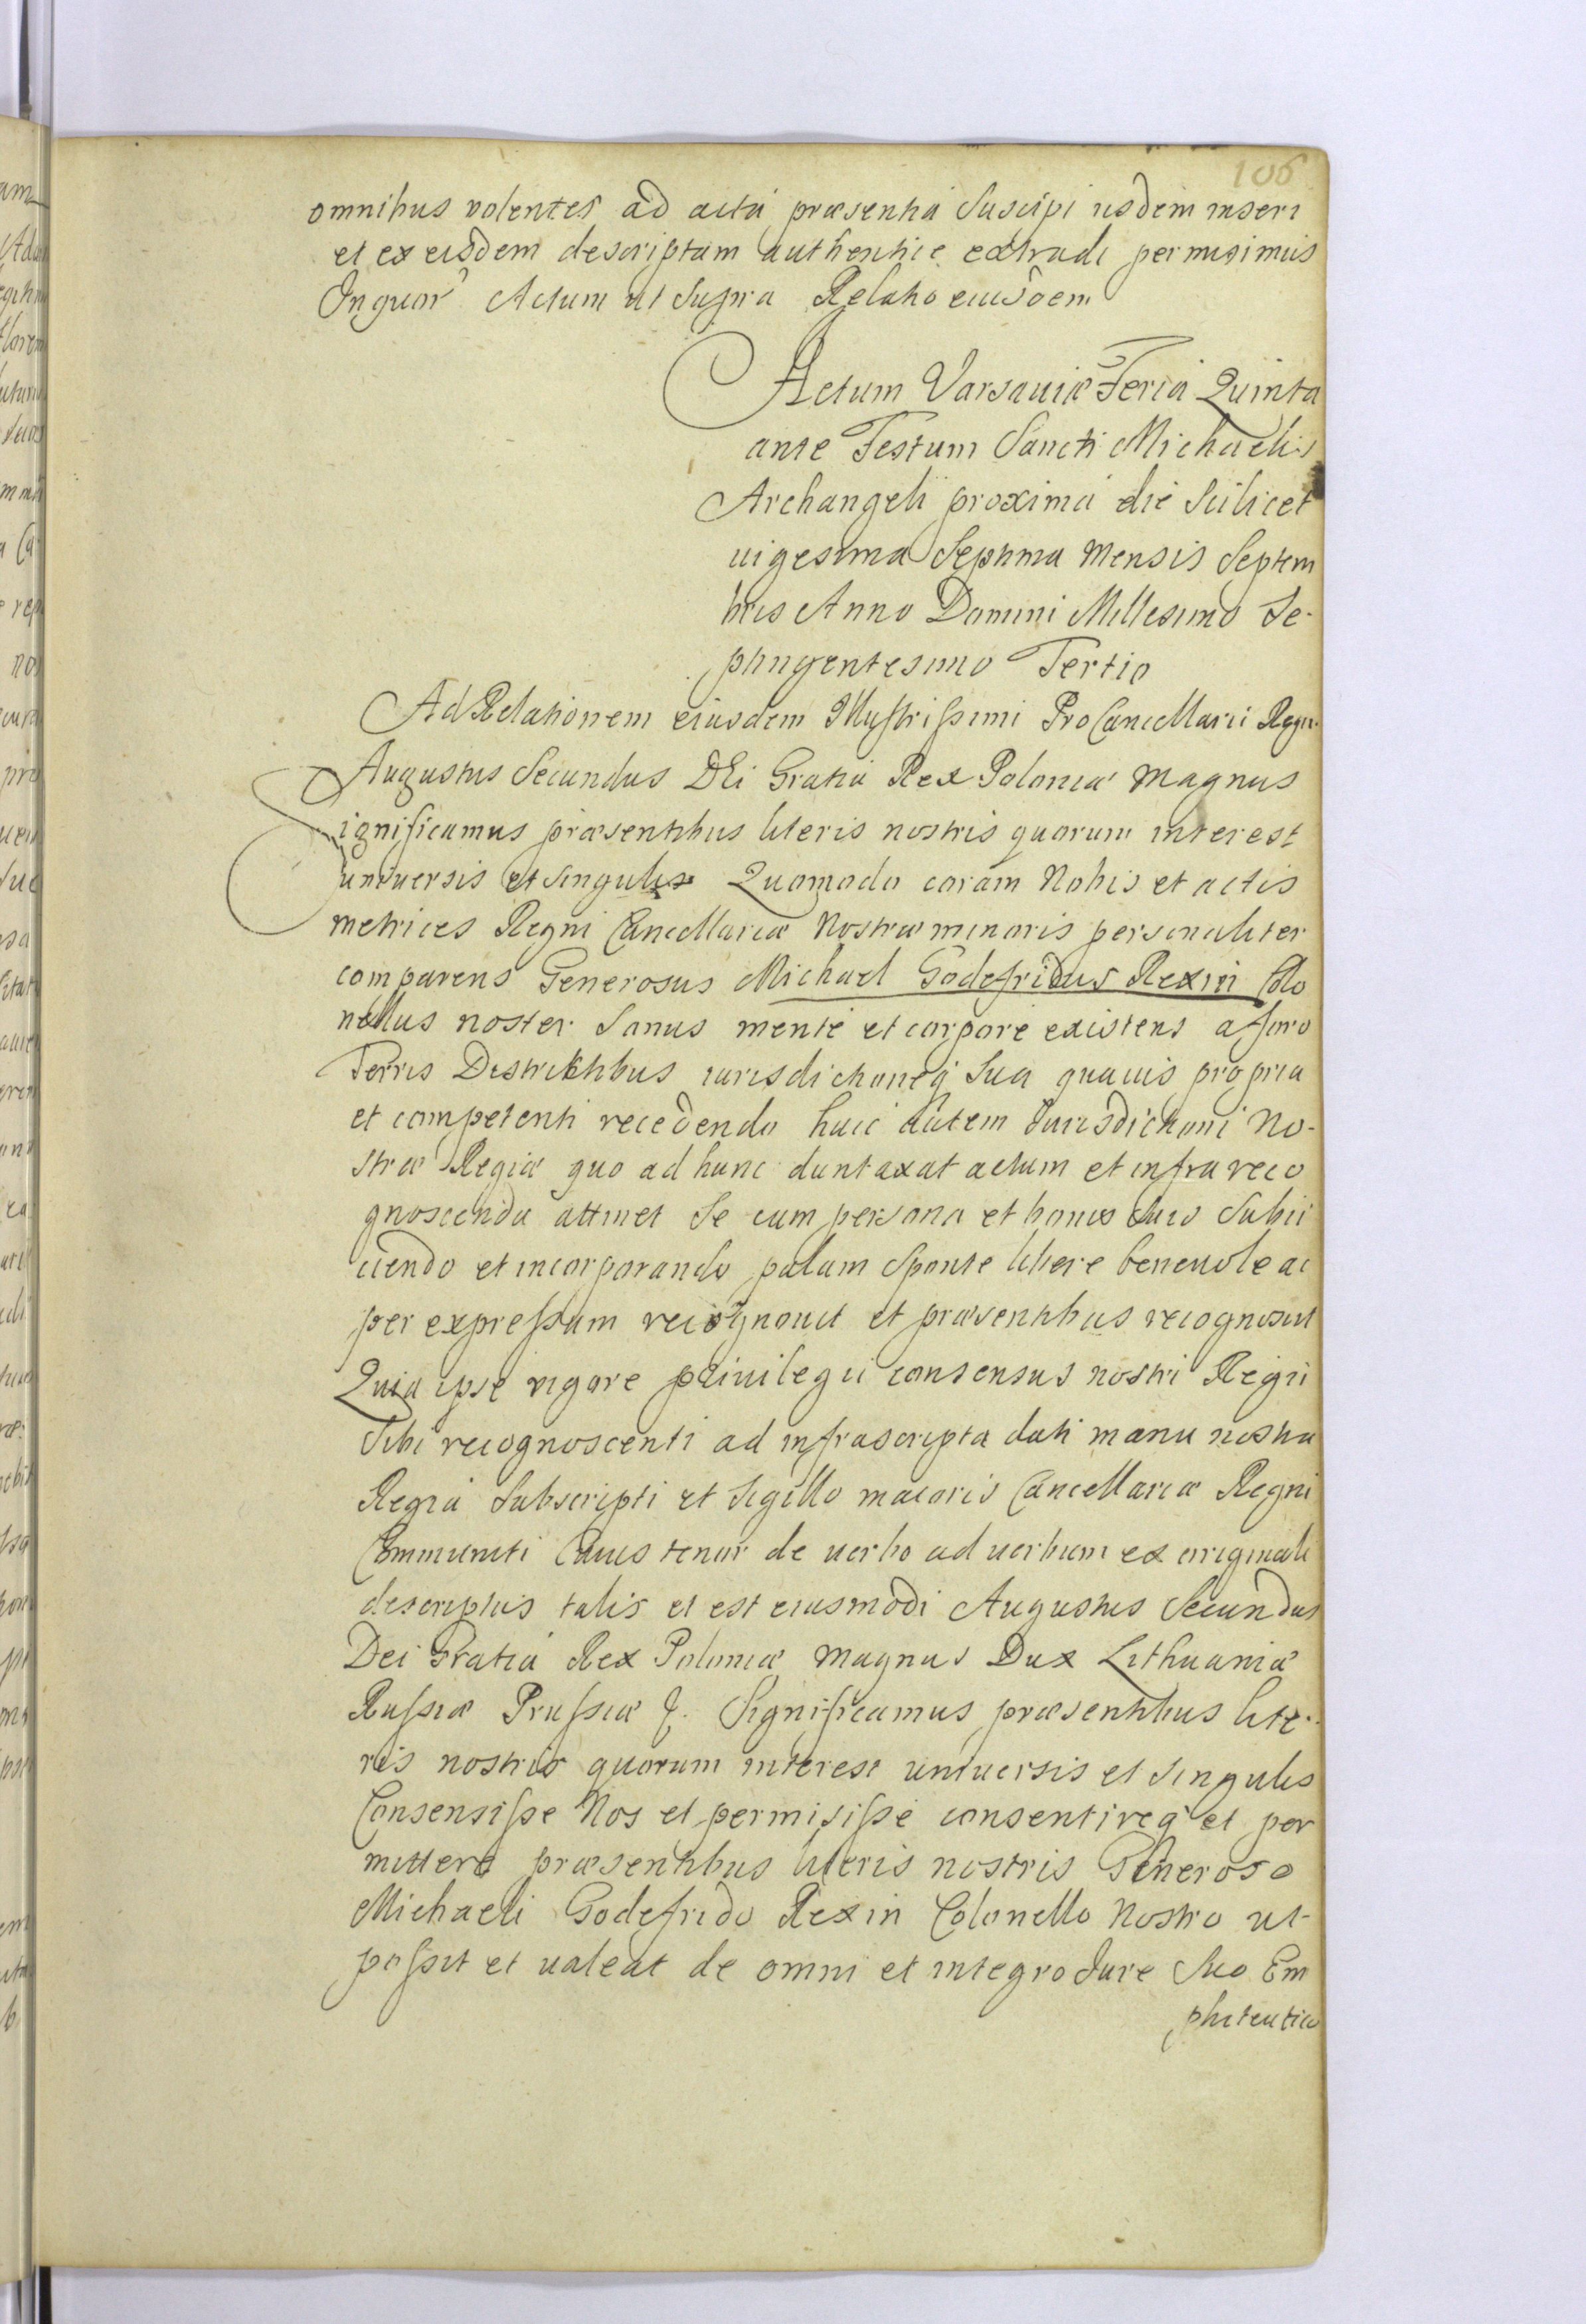 106
omnibus volentes ad acta præsentia Suscipi iisdem inseri
et ex eisdem descriptam authentice extradi permisimus
In quor Actum ut Supra Relatio eiusdem
Actum Varsaviæ Feria Quinta
ante Festum Sancti Michaelis
Archangeli proxima die Scilicet
uigesima Septima Mensis Septem
bris Anno Domini Millesimo Se-
ptingentesimo Tertio
Ad Relationem eiusdem Illustrissimi ProCancellarii Regni
Augustus Secundus DEi Gratia Rex Poloniæ Magnus
Significamus præsentibus literis nostris quorum interest
universis et singulis Quomodo coram Nobis et actis
metrices Regni Cancellariæ Nostræ minoris personaliter
comparens Generosus Michael Godefridus Rexin Colo
nellus noster Sanus mente et corpore existens a foro
Terris Districtibus iurisdictioneq Sua quauis propria
et competenti recedendo huic autem Jurisdictioni No-
stræ Regiæ quo ad hunc duntaxat actum et infra reco
gnoscenda attinet Se cum persona et bonis Suis Subii
ciendo et incorporando palam Sponte libere benevole ac
per expressum recognouit et præsentibus recognoscit
Quia ipse vigore priuilegii consensus nostri Regii
Sibi recognoscenti ad infrascripta dati manu nostra
Regia Subscripti et Sigillo maioris Cancellariæ Regni
Communiti Cuius tenor de uerbo ad uerbum ex originali
descriptus talis et est eiusmodi Augustus Secundus
Dei Gratia Rex Poloniæ Magnus Dux Lithuaniæ
Russiæ Prussiæ &. Significamus præsentibus lite-
ris nostris quorum interest uniuersis et singulis
Consensisse Nos et permisisse consentireq et per
mittere præsentibus literis nostris Generoso
Michaeli Godefrido Rexin Colonello Nostro ut-
possit et ualeat de omni et integro Jure Suo Em
phiteutico